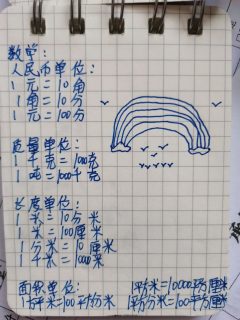 数学：
人民币单位：
1元＝10角
1角＝10分
1元＝100分
质量单位：
1千克＝1000克
1吨＝1000千克
长度单位：
1米＝10分米
1米＝100厘米
1分米＝10厘米
1千米＝1000米
面积单位： 1平方米＝10000平方厘米
1平方米＝100平方分米 1平方分米＝100平方厘米